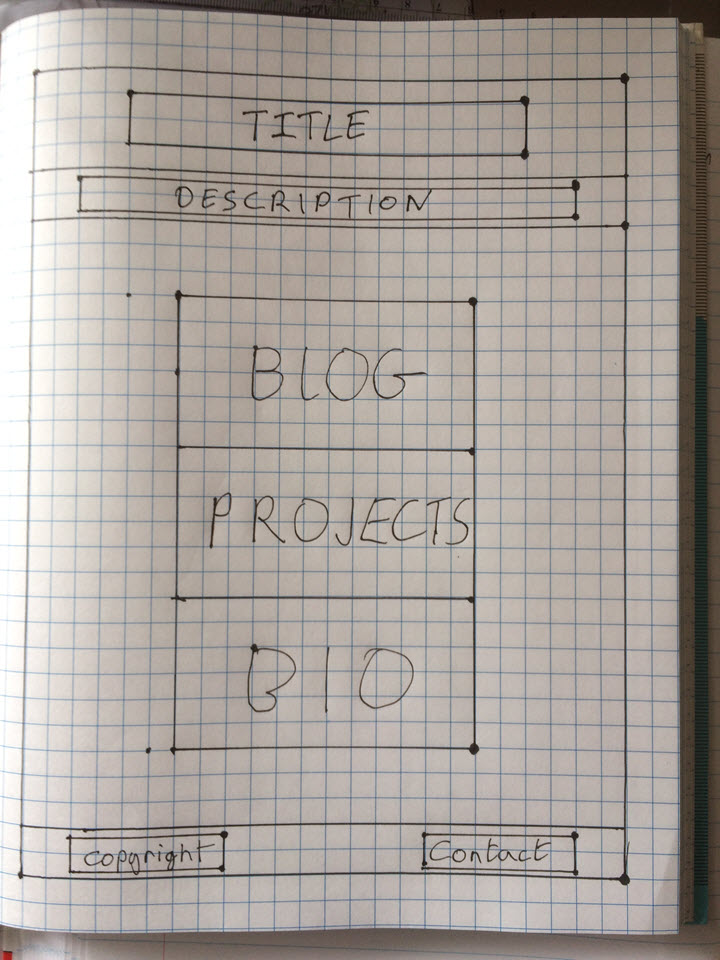 TITLE
DESCRIPTION
BLOG
PROJECTS
BIO
copyright Contact